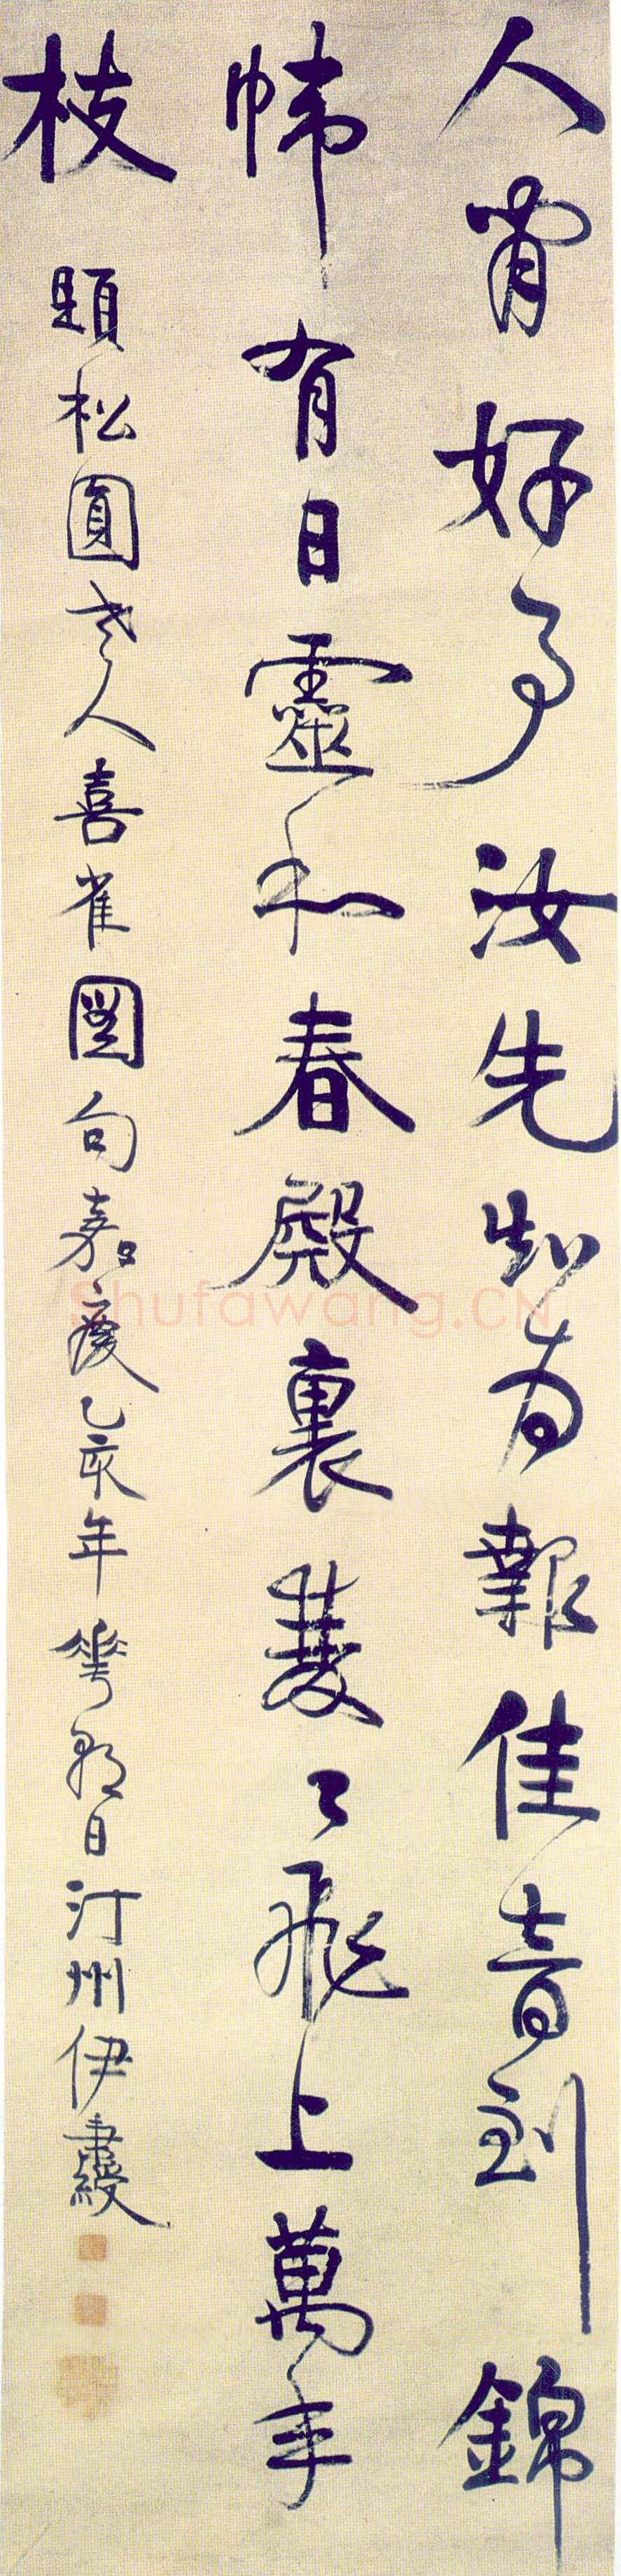 人當好事汝先知為報佳音到錦
幃有日靈和春殿裏雙〻飛上萬年
枝
題松圓老人喜雀圖句嘉慶乙亥年華朝日汀州伊秉綬
Shufawang.CN